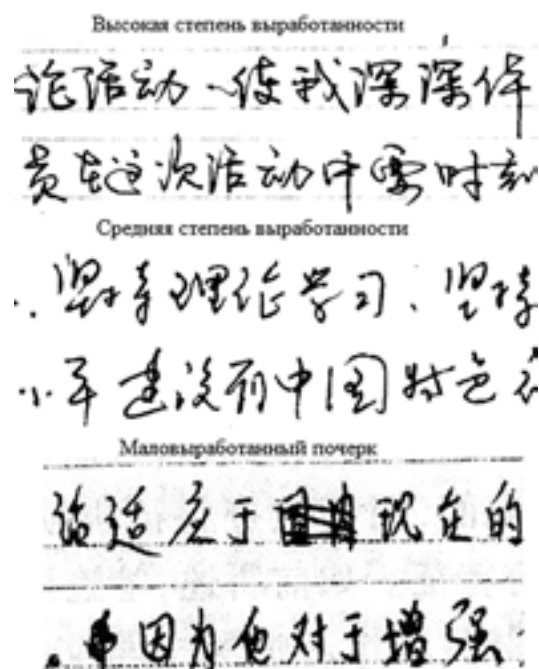 Высокая степень выработанности
论活动、使我深深体
员在这次活动中要时刻
Средняя степень выработанности
坚持理论学习、坚持
小平建设有中国特色
Маловыработанный почерк
适应于 现在的
因为他对于增强